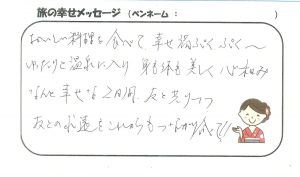 旅の幸せメッセージ（ペンネーム：　　　　）
おいしい料理を食べて、幸せ福ぷくぷく〜
ゆったりと温泉に入り 身も体も美しく 心和み
なんと幸せな2日間。友と
友との　をこれからもつながり